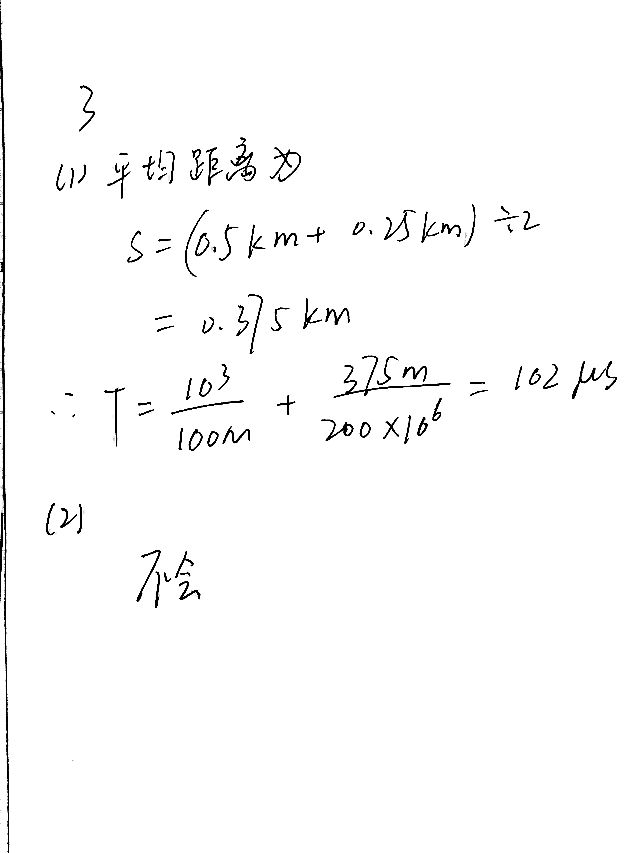 3
(1) 平均距离为
S = (0.5km + 0.25km) ÷2
= 0.375 km
∴ T = 10³/100M + 375m/200×10⁶ = 102 μs
(2)
不会